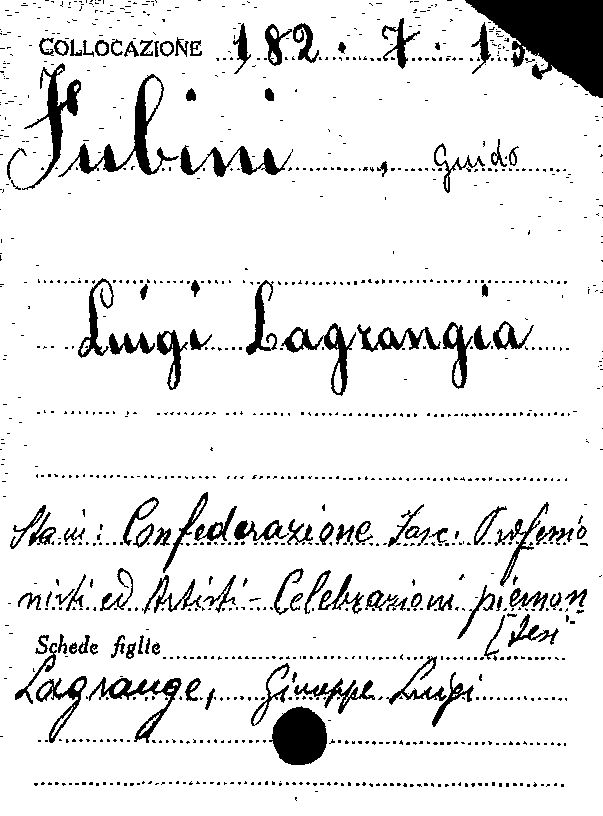 COLLOCAZIONE 182.7.1
Fubini, Guido
Luigi Lagrangia
Sta in: Confederazione Fasc. Professio
nisti ed Artisti - Celebrazioni piemon
[tesi
Schede figlie
Lagrange, Giuseppe Luigi